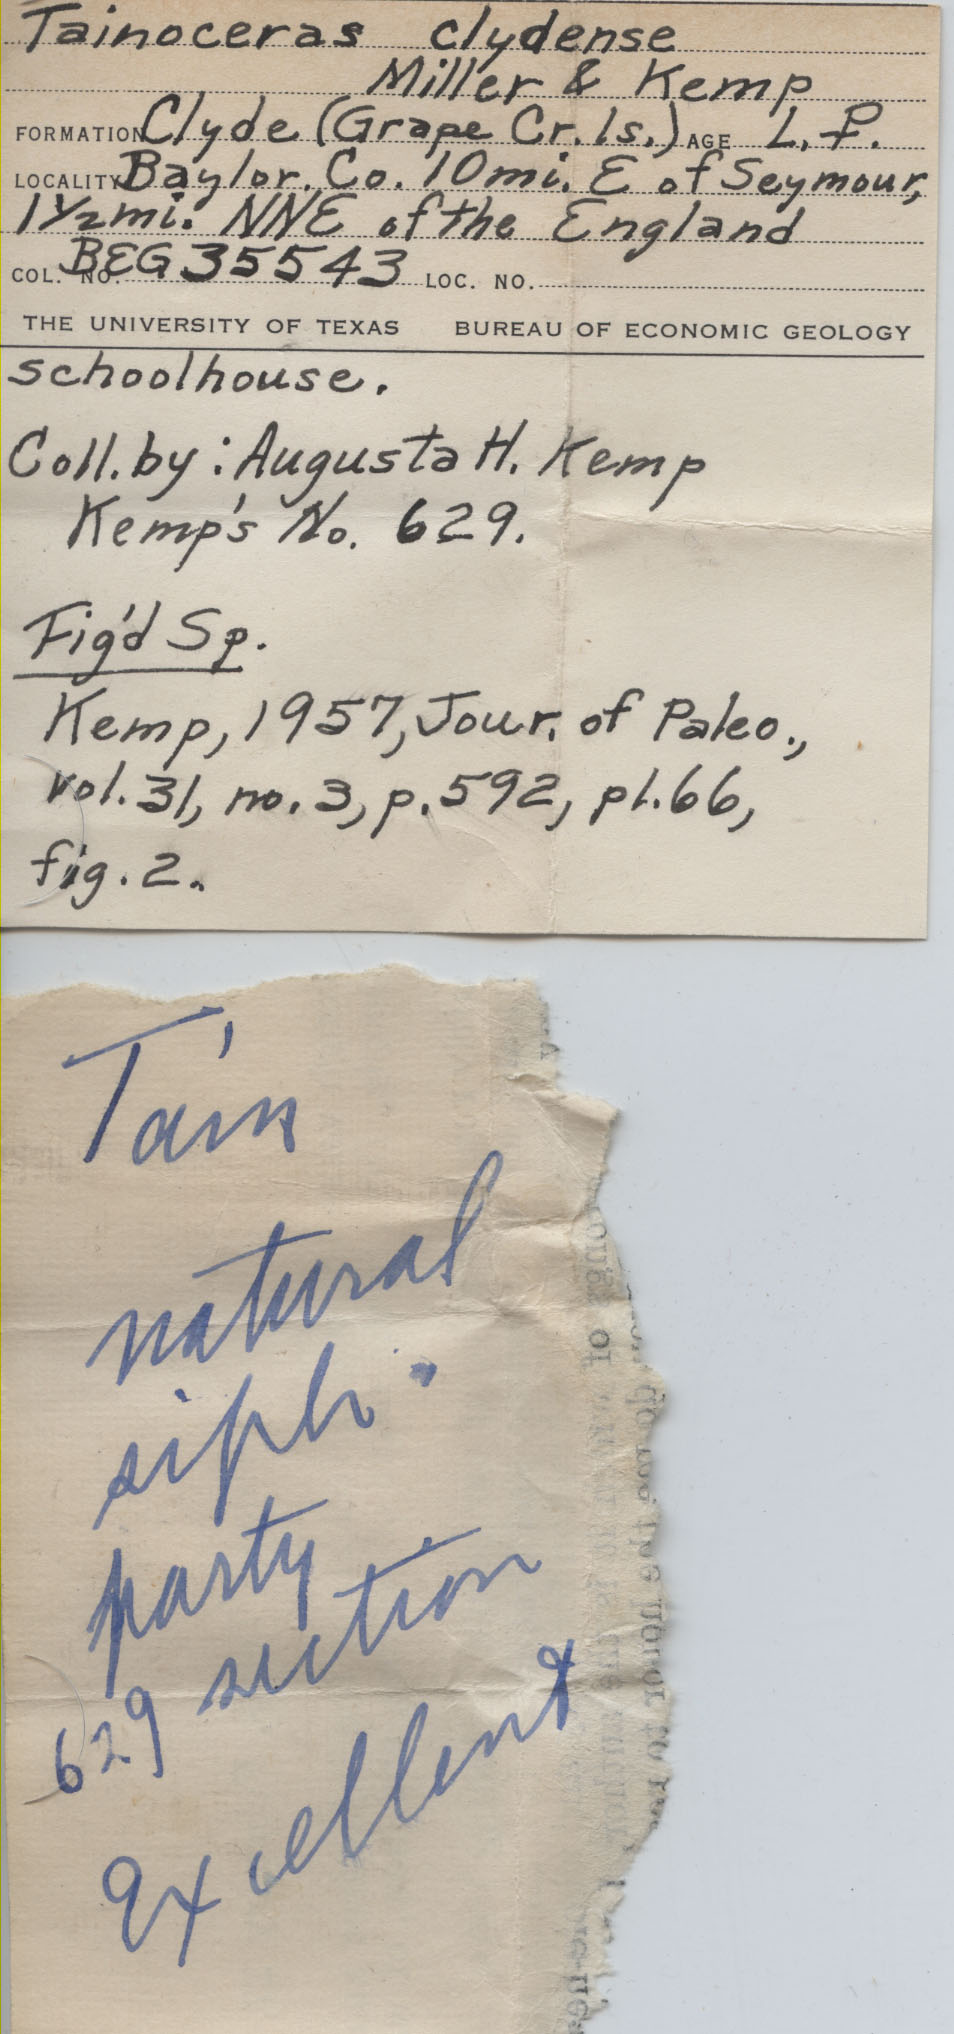 Tainoceras clydense
Miller & Kemp
FORMATION Clyde (Grape Cr. ls.) AGE L. P.
LOCALITY Baylor. Co. 10 mi. E of Seymour,
1 1/2 mi. NNE of the England
COL. NO. BEG 35543 LOC. NO.
THE UNIVERSITY OF TEXAS BUREAU OF ECONOMIC GEOLOGY
schoolhouse.
Coll. by: Augusta H. Kemp
Kemp's No. 629.
Fig'd Sp.
Kemp, 1957, Jour. of Paleo.,
vol. 31, no. 3, p. 592, pl. 66,
fig. 2.
Tain
natural
siph.
party
629 section
Excellent